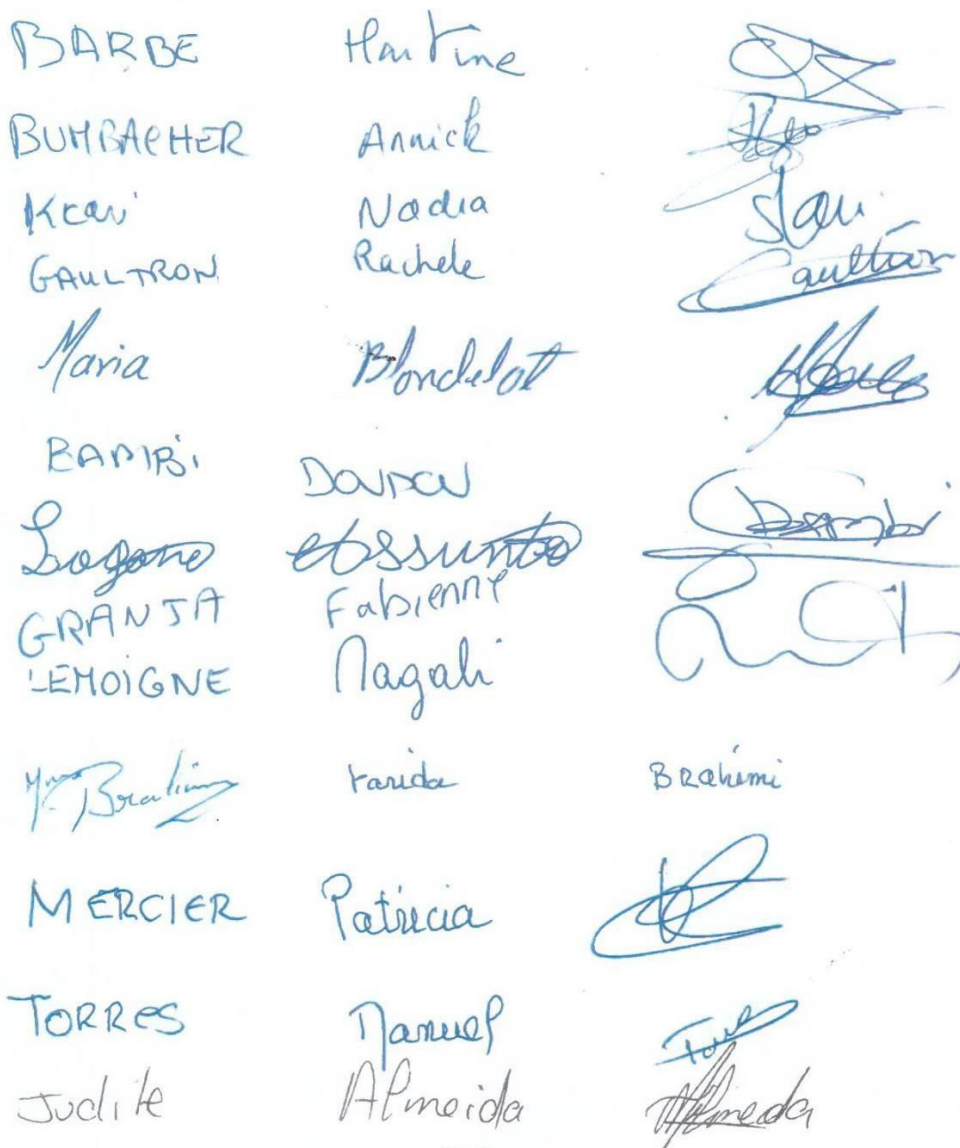 BARBE Martine
BUMBACHER Annick
Kravi Nadia
GAULTRON Rachele Gaultron
Maria Blondelot
BAMBi DOUDOU Bambi
Logano Assunta
GRANJA Fabienne
LEMOiGNE Magali
Mme Brahimi Farida Brahimi
MERCIER Patricia
TORRES Manuel
Judite Almeida Almeida